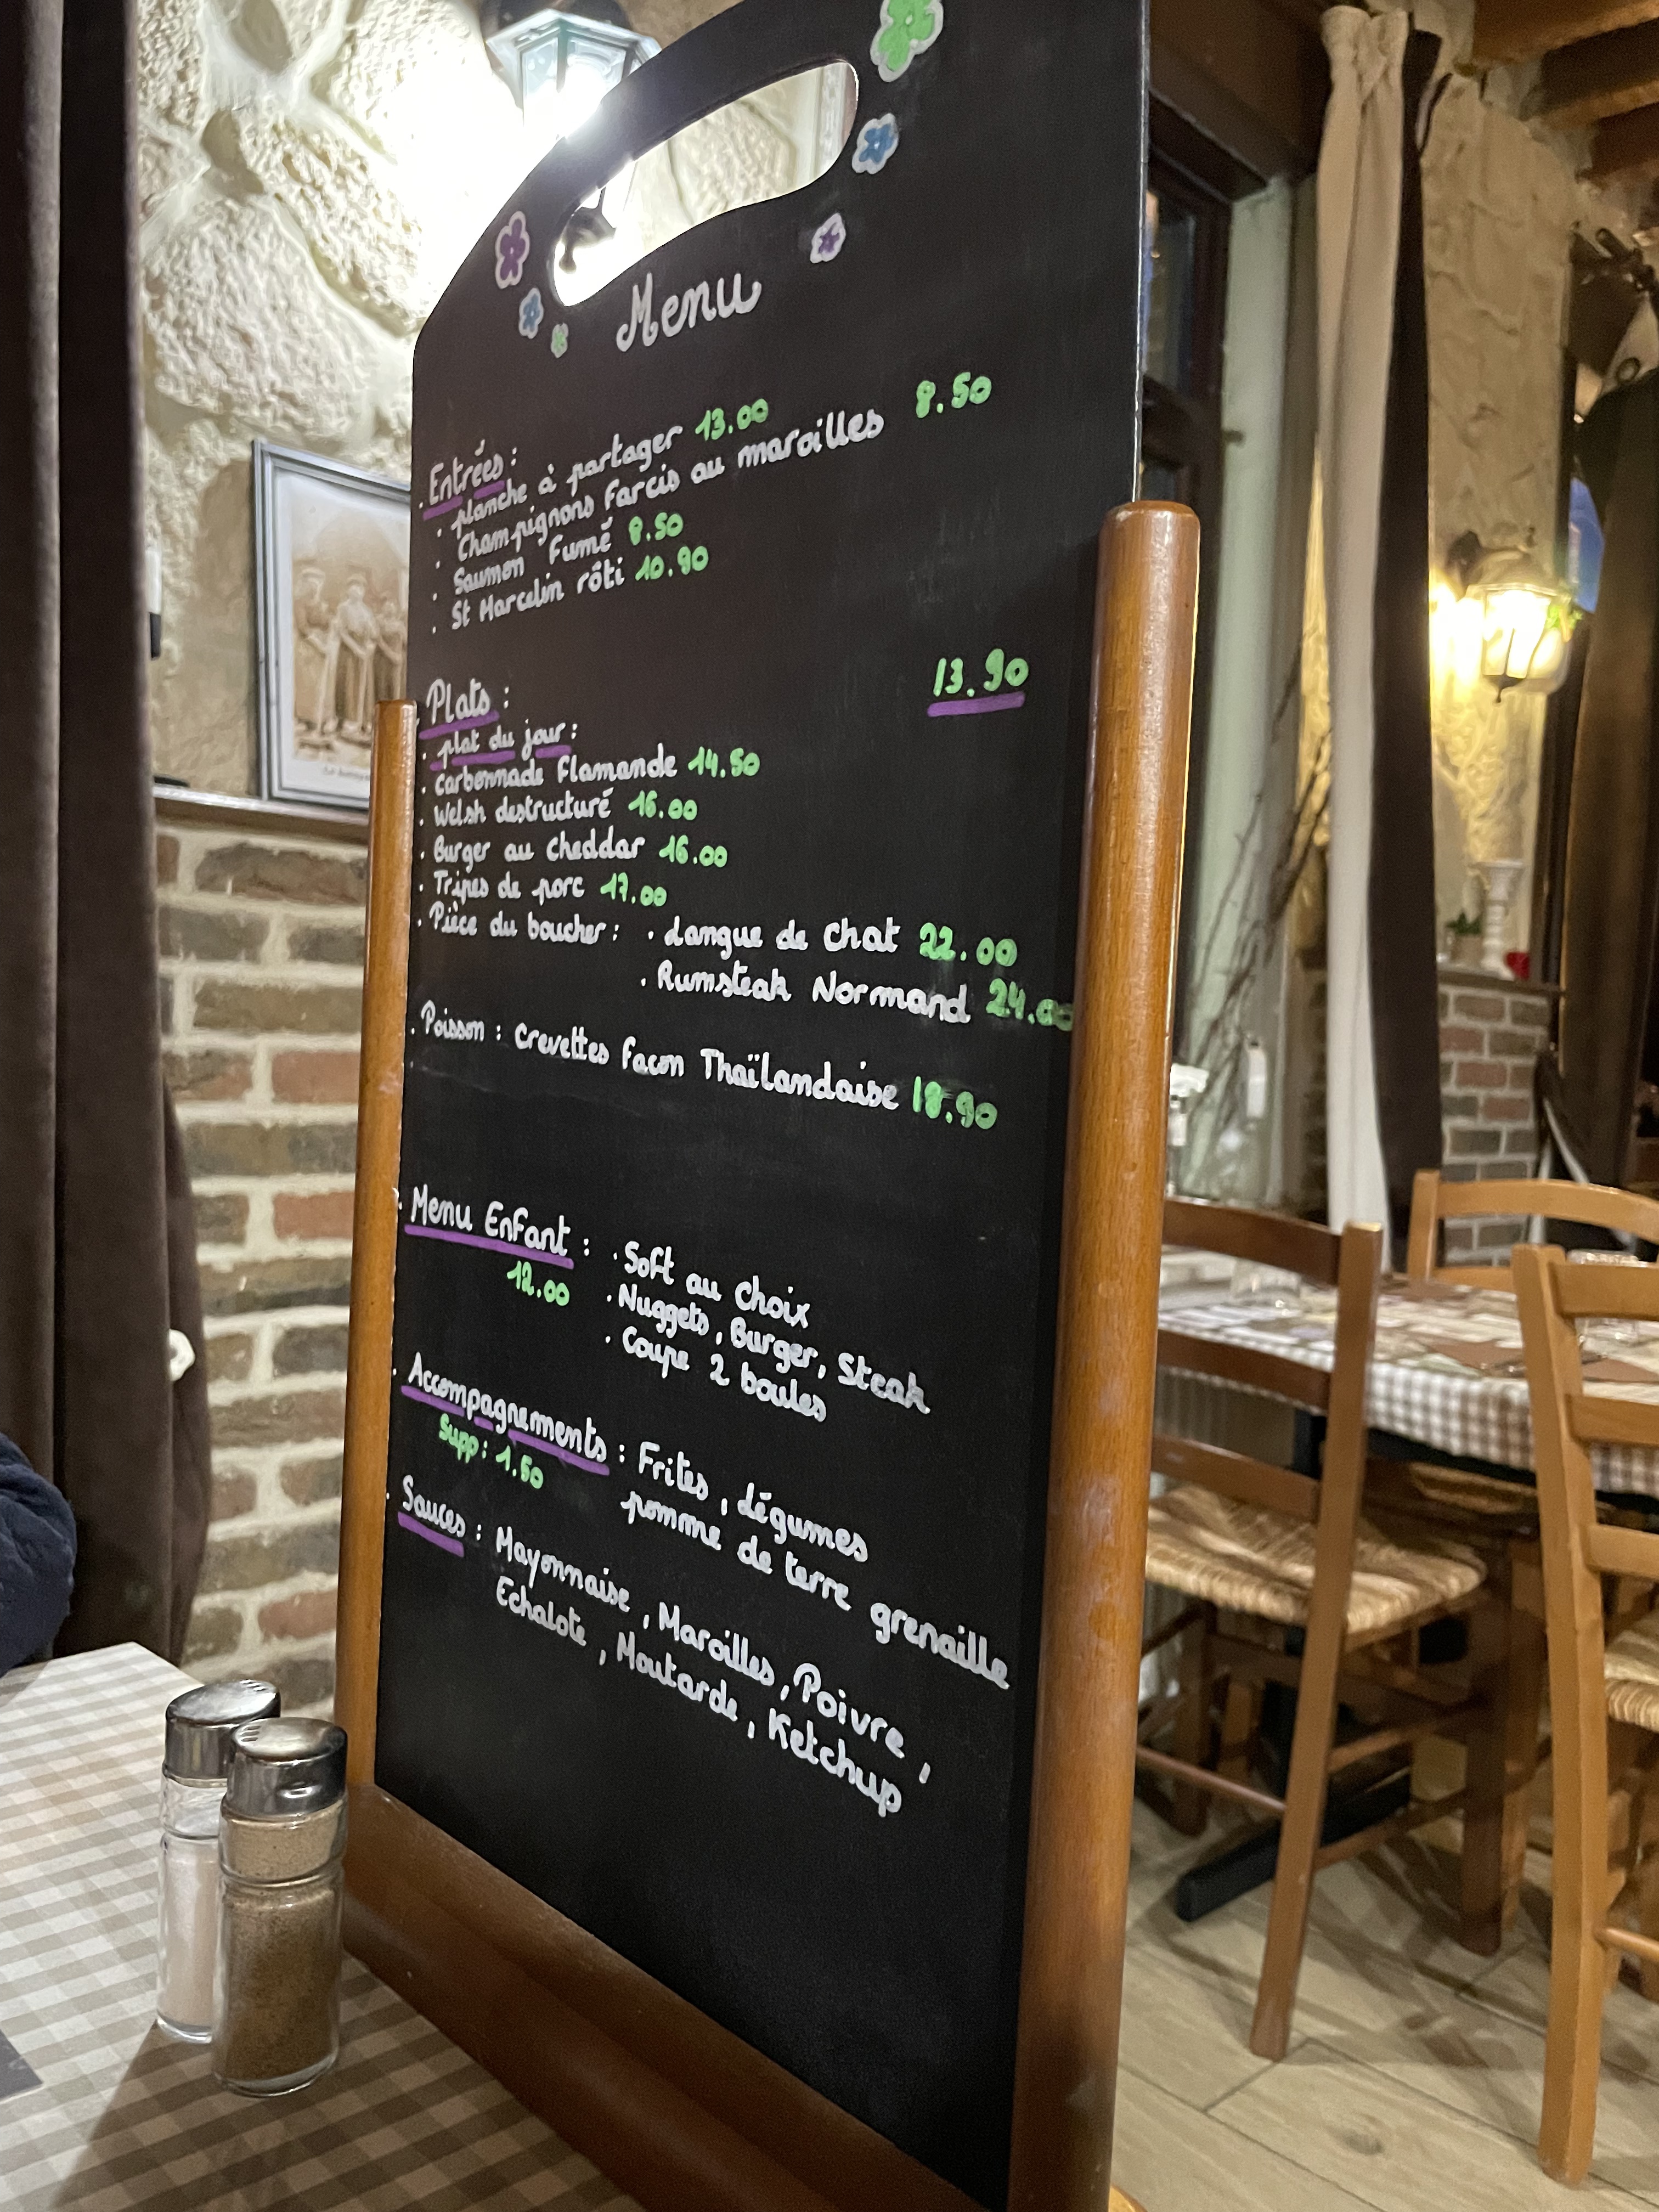 Menu
Entrées :
. planche à partager 13.00
. Champignons farcis au maroilles 8.50
. Saumon Fumé 8.50
. St Marcelin rôti 10.90
. Plats :
. plat du jour : 13.90
. Carbonnade Flamande 14.50
. Welsh destructuré 16.00
. Burger au cheddar 16.00
. Tripes de porc 17.00
. Pièce du boucher : . Langue de Chat 22.00
. Rumsteak Normand 24.00
. Poisson : Crevettes facon Thaïlandaise 18.90
. Menu Enfant : . Soft au choix
12.00 . Nuggets, Burger, Steak
. Coupe 2 boules
. Accompagnements : Frites, légumes
Supp : 1.50 pomme de terre grenaille
. Sauces : Mayonnaise, Maroilles, Poivre,
Echalote, Moutarde, Ketchup